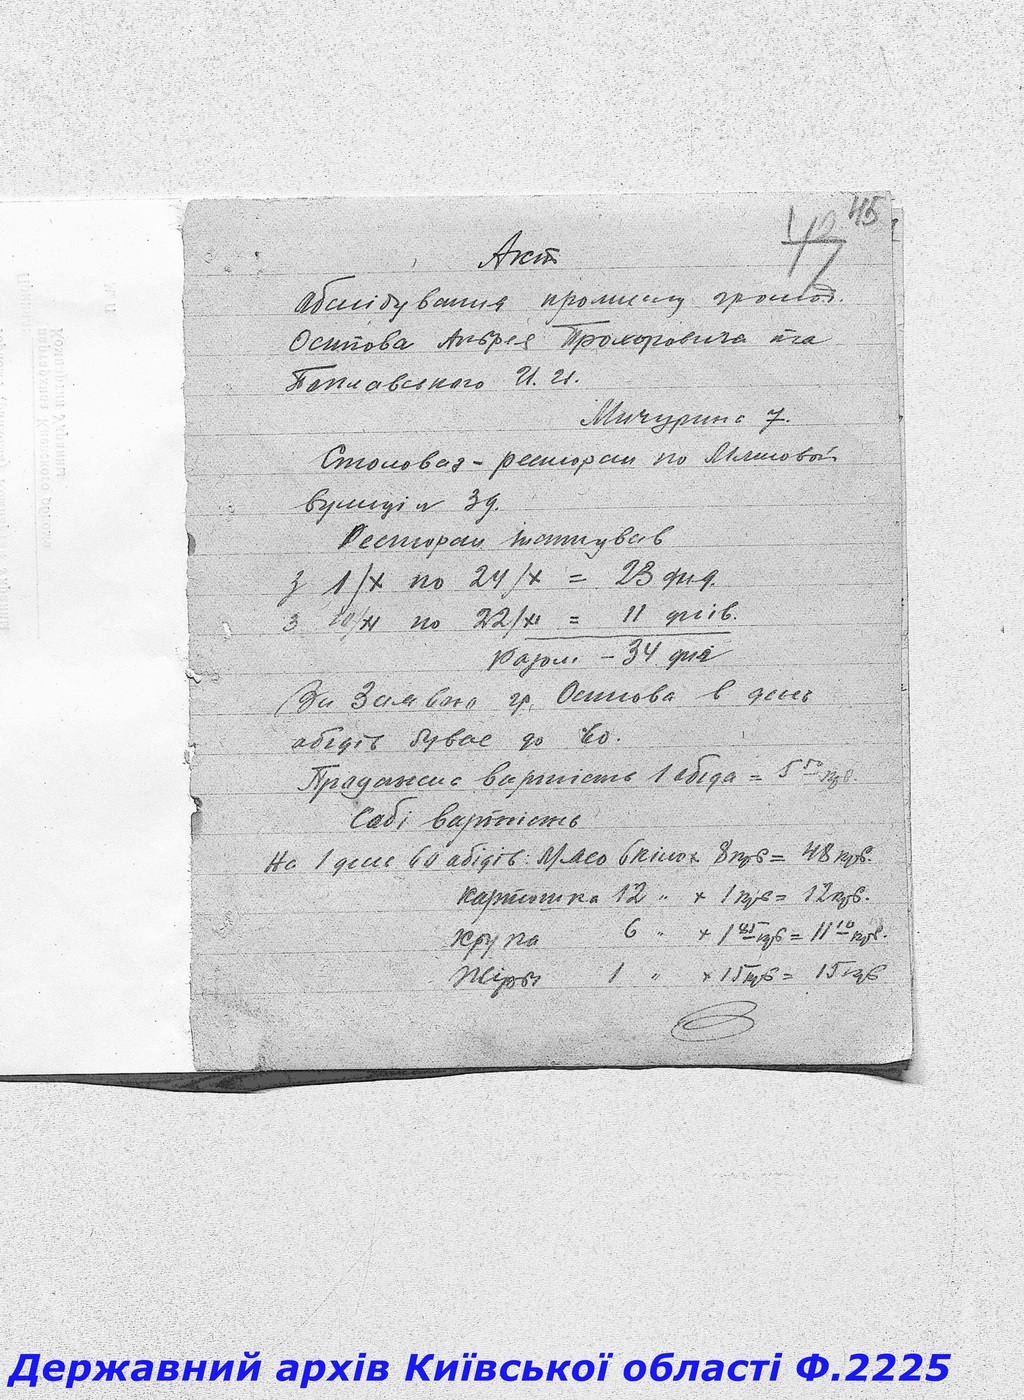 45
47
Акт
обслідування промислу громад.
Осипова Андрея Прохоровича та
Поплавського И. И.
Мичурина 7.
Столовая - ресторан по
вулиці № 39.
Ресторан
з 1/X по 24/X = 23 дня.
з 10/XI по 22/XI = 11 днів.
Разом - 34 дня
За Заявою гр. Осипова в день
обідів буває до 60.
Продажна вартість 1 обіда = 5 50 крб.
Собівартість
На 1 день 60 обідів: Мясо 6 кіло x 8 крб = 48 крб.
Картошка 12 " x 1 крб = 12 крб.
Крупа 6 " x 1 85 крб = 11 10 крб.
Жиры 1 " x 15 крб = 15 крб
Державний архів Київської області Ф.2225